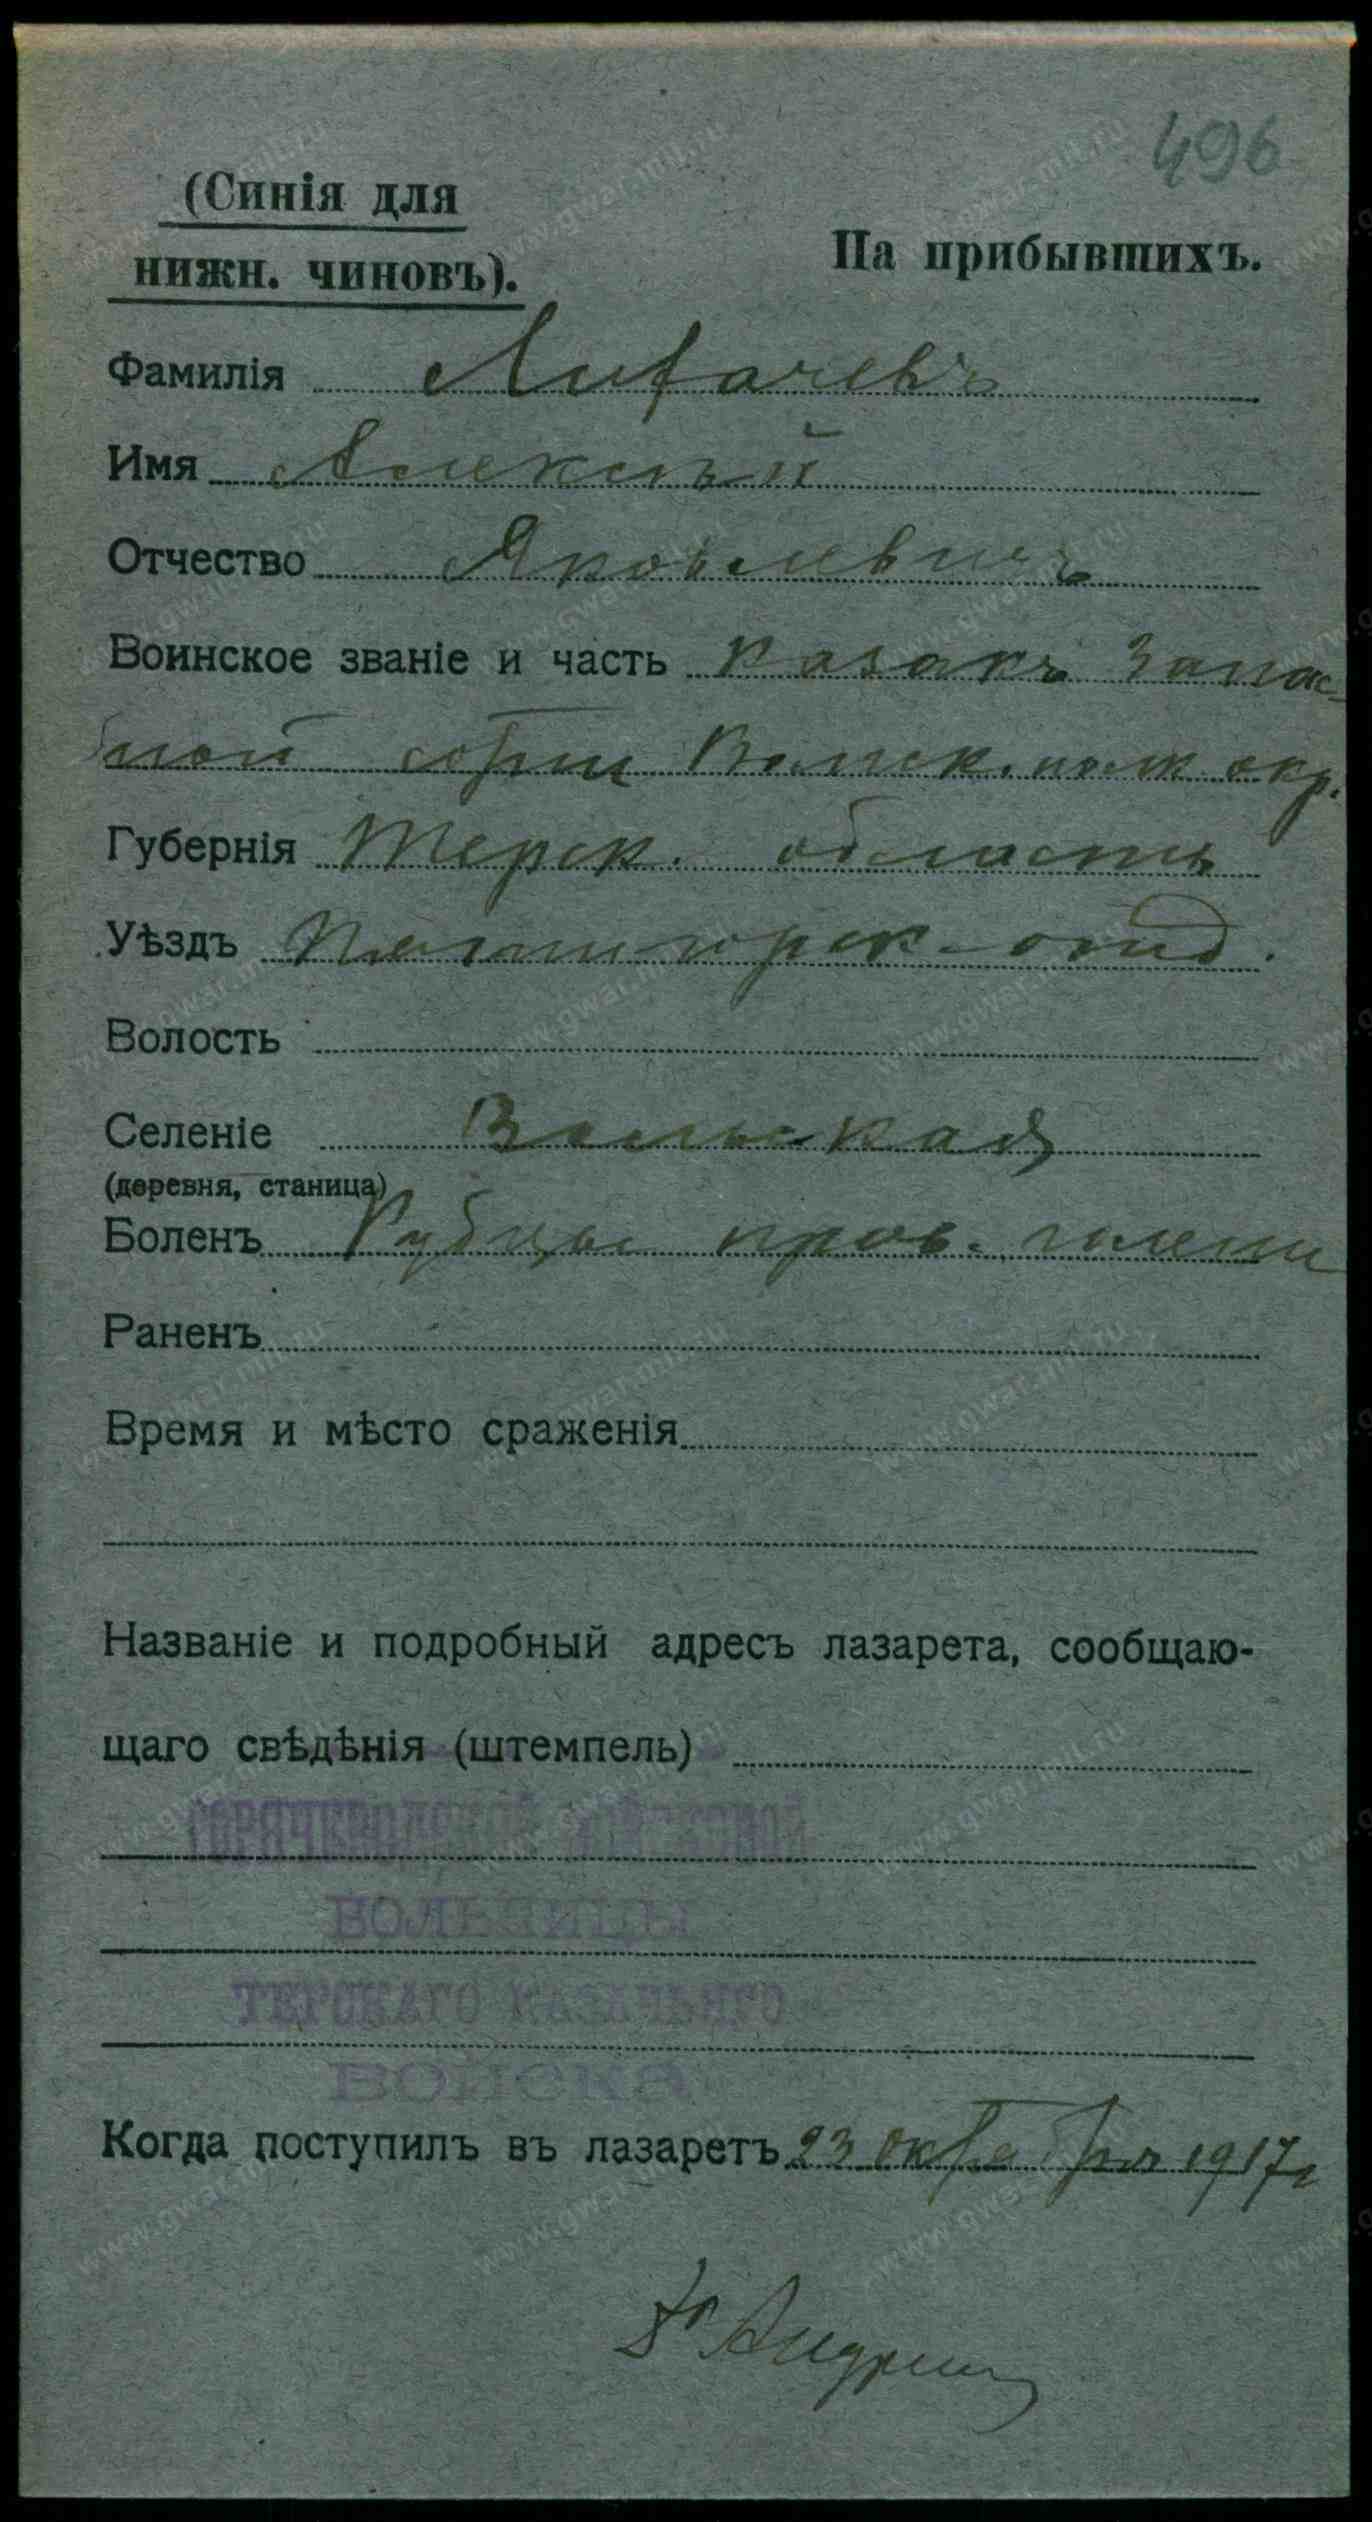 496
(Синія для
нижн. чиновъ).
На прибывшихъ.
Фамилія Лихачевъ
Имя Алексѣй
Отчество Яковлевичъ
Воинское званіе и часть казакъ Запас-
ной сотни Волгск. полк. окр.
Губернія Терск. область
Уѣздъ Пятигорск. отд.
Волость
Селеніе
(деревня, станица)
Боленъ Рубцы прав. голени
Раненъ
Время и мѣсто сраженія
Названіе и подробный адресъ лазарета, сообщаю-
щаго свѣдѣнія (штемпель)
ГОРЯЧЕВОДСКОЙ ВОЙСКОВОЙ
БОЛЬНИЦЫ
ТЕРСКАГО КАЗАЧЬЯГО
ВОЙСКА
Когда поступилъ въ лазаретъ 23 октября 1917 г